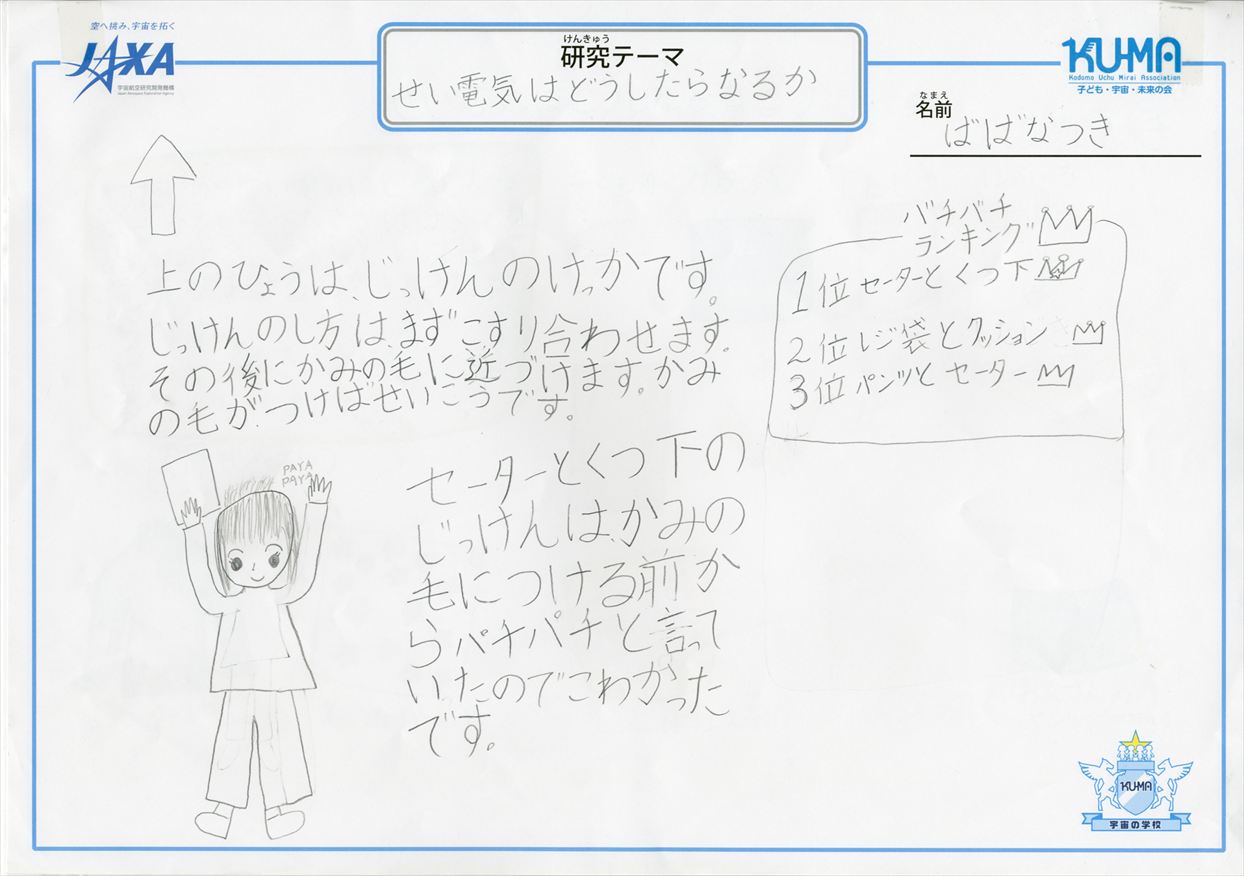 空へ挑み、宇宙を拓く
JAXA
宇宙航空研究開発機構
Japan Aerospace Exploration Agency
けんきゅう
研究テーマ
せい電気はどうしたらなるか
KU-MA
Kodomo Uchu Mirai Association
子ども・宇宙・未来の会
なまえ
名前
ばばなつき
上のひょうは、じっけんのけっかです。
じっけんのし方は、まずこすり合わせます。
その後にかみの毛に近づけます。かみ
の毛がつけばせいこうです。
バチバチ
ランキング
1位セーターとくつ下
2位レジ袋とクッション
3位パンツとセーター
PAYA
PAYA
セーターとくつ下の
じっけんは、かみの
毛につける前か
らパチパチと言って
いたのでこわかった
です。
KU-MA
宇宙の学校